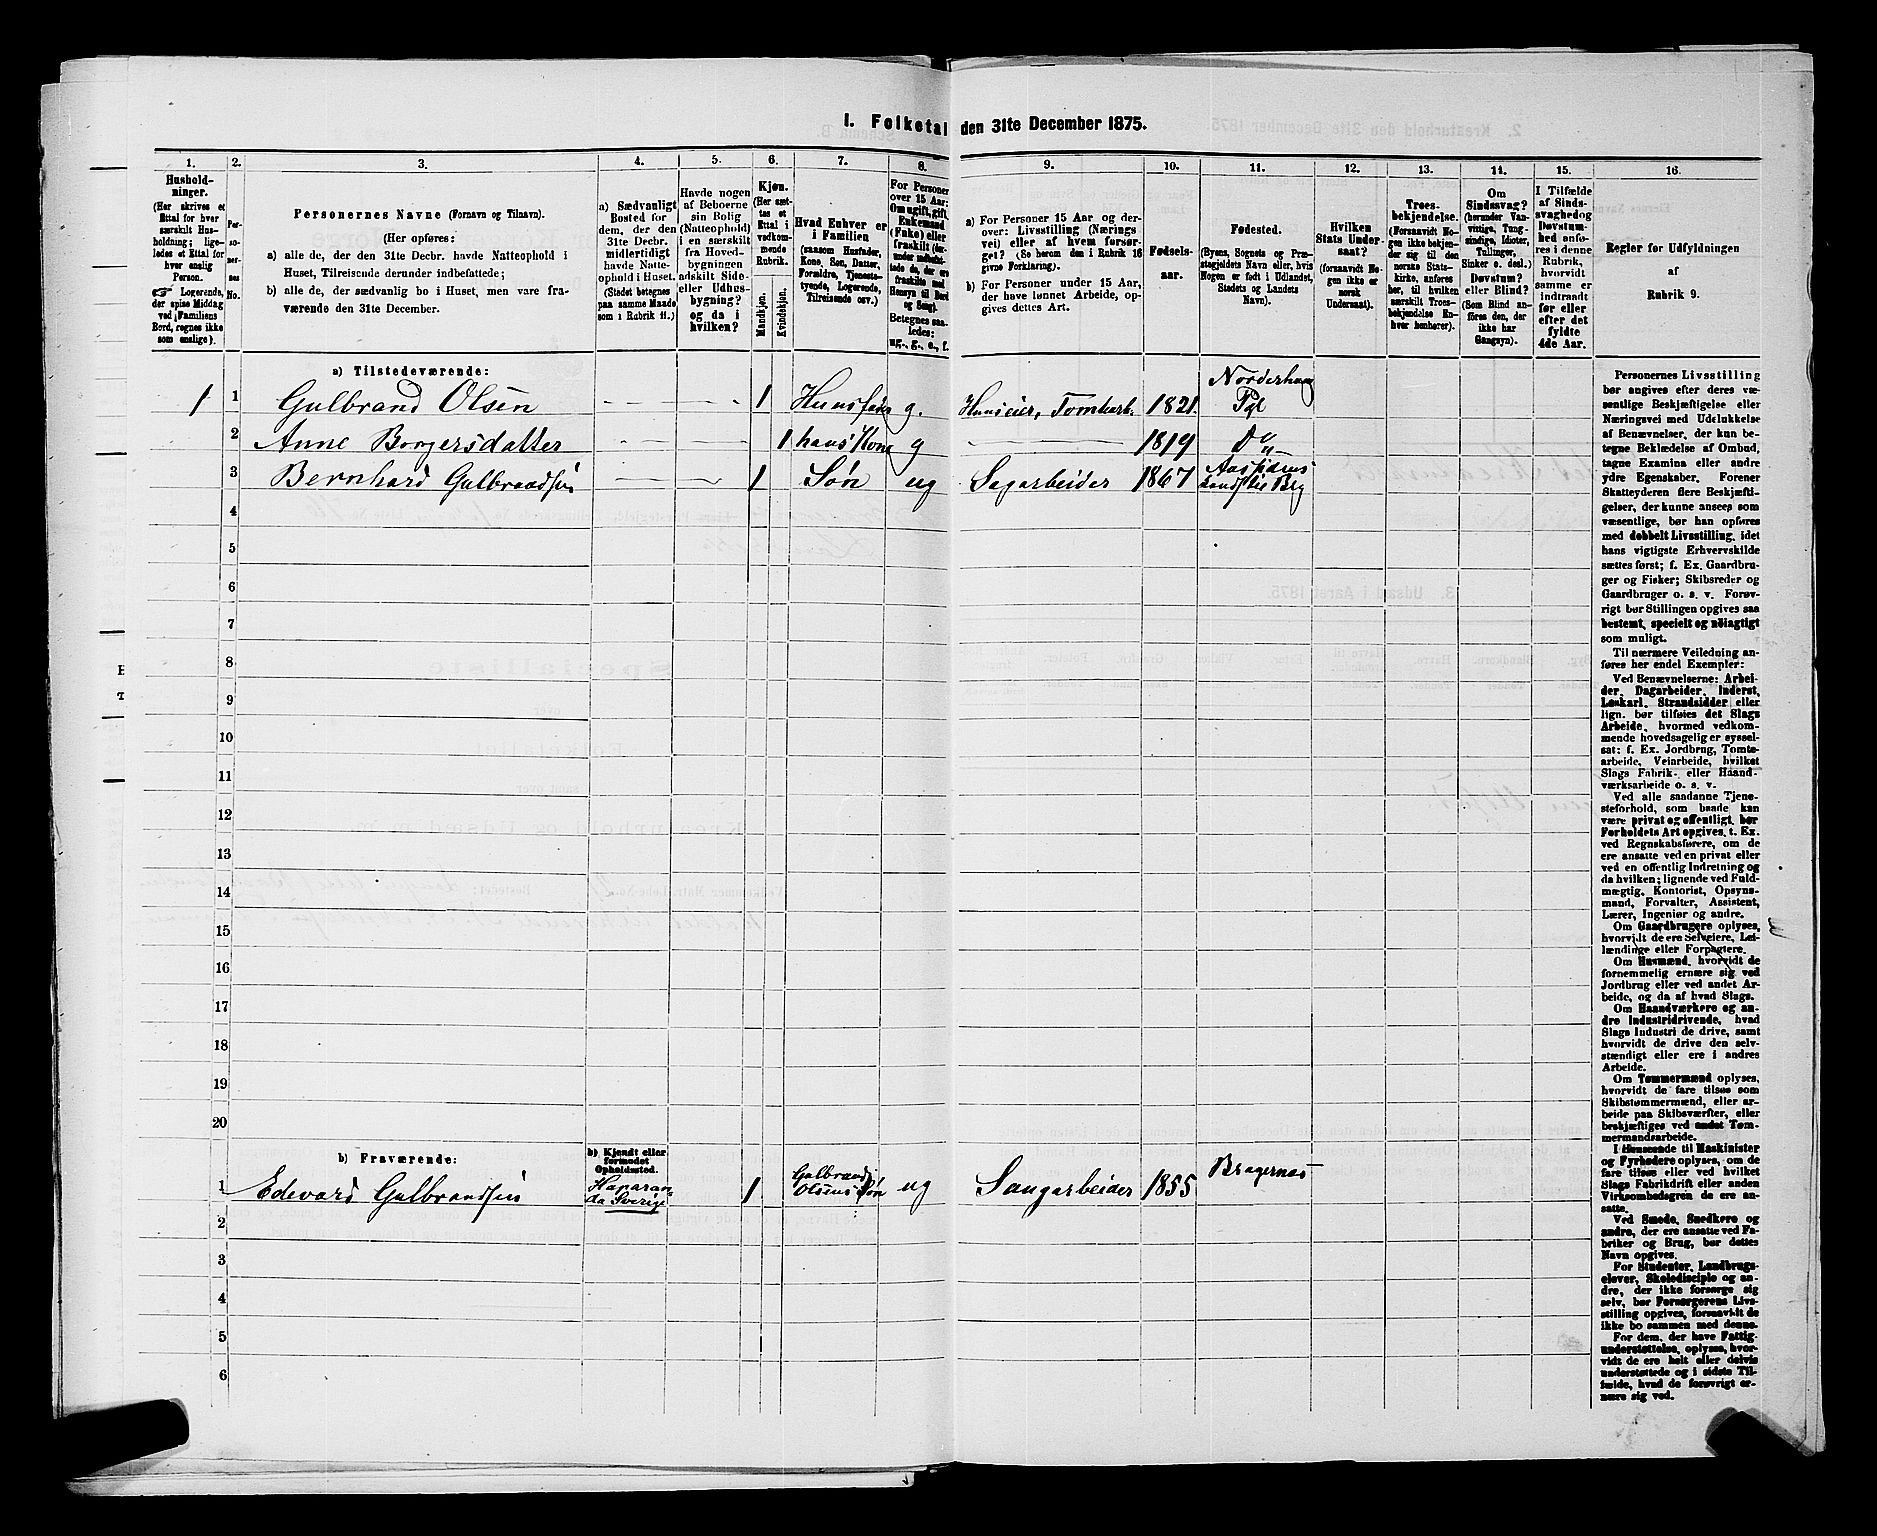 I. Folketal den 31te December 1875.
1. 2. 3. 4. 5. 6. 7. 8. 9. 10. 11. 12. 13. 14. 15. 16.
Hushold-
ninger.
(Her skrives et
Ettal for hver
særskilt Hus-
holdning; lige-
ledes et Ettal for
hver enslig
Person.
☞ Logerende,
der spise Middag
ved Familiens
Bord, regnes ikke
som enslige).
Per-
so-
ner-
nes
No.
Personernes Navne (Fornavn og Tilnavn).
(Her opføres:
a) alle de, der den 31te Decbr. havde Natteophold i
Huset, Tilreisende derunder indbefattede;
b) alle de, der sædvanlig bo i Huset, men vare fra-
værende den 31te December.
a) Sædvanligt
Bosted for
dem, der den
31te Decbr.
midlertidigt
havde Natte-
ophold i Huset.
(Stedet betegnes
paa samme Maade
som i Rubrik 11.)
Havde nogen
af Beboerne
sin Bolig
(Natteophold)
i en særskilt
fra Hoved-
bygningen
adskilt Side-
eller Udhus-
bygning?
og da i
hvilken?
Kjøn.
(Her sæt-
tes et
Ettal i
vedkom-
mende
Rubrik.
Mandkjøn.
Kvindekjøn.
Hvad Enhver er
i Familien
(saasom Husfader,
Kone, Søn, Datter,
Forældre, Tjeneste-
tyende, Logerende,
Tilreisende osv.)
For Personer
over 15 Aar:
Om ugift, gift,
Enkemand
(Enke) eller
fraskilt
Betegnes saa-
ledes:
ug., g., e., f.
a) For Personer 15 Aar og der-
over: Livsstilling (Nærings-
vei) eller af hvem forsør-
get? (Se herom den i Rubrik 16
givne Forklaring).
b) For Personer under 15 Aar,
der have lønnet Arbeide, op-
gives dettes Art.
Fødsels-
aar.
Fødested.
(Byens, Sognets og Præ-
stegjeldets Navn eller, hvis
Nogen er født i Udlandet,
Stedets og Landets
Navn).
Hvilken
Stats Under-
saat?
(forsaavidt No-
gen ikke er
norsk
Undersaat).
Troes-
bekjendelse.
(Forsaavidt No-
gen ikke bekjen-
der sig til den
norske Stats-
kirke, anføres
her, til hvilken
særskilt Troes-
bekjendelse En-
hver henhører).
Om
Sindssvag?
(herunder Van-
vittige, Tung-
sindige, Idioter,
Tullinger,
Sinker o. desl.)
Døvstum?
eller Blind?
(Som Blind an-
føres den, der
ikke har
Gangsyn).
I Tilfælde
af Sinds-
svaghed og
Døvstum-
hed anfø-
res i denne
Rubrik,
hvorvidt
samme er
indtraadt
før eller
efter det
fyldte
4de Aar.
Regler for Udfyldningen
af
Rubrik 9.
a) Tilstedeværende:
1 1 Gulbrand Olsen — — — 1 Huusfader g. Huuseier, Tomtearb. 1821. Norderhaug
Pgl
2 Anne Borgersdatter — — — 1 hans Kone g — 1819 Do
3 Bernhard Gulbrandsen — — — 1 Søn ug Sagarbeider 1867
4
5
6
7
8
9
10
11
12
13
14
15
16
17
18
19
20
b) Fraværende:
b) Kjendt eller
formodet
Opholdssted.
1 Edevard Gulbrandsen Haparan-
da Sverige 1 Gulbrand
Olsens Søn ug Saugarbeider 1855 Bragernæs
2
3
4
5
6
Personernes Livsstilling
bør angives efter deres væ-
sentlige Beskjæftigelse eller
Næringsvei med Udelukkelse
af Benævnelser, der kun be-
tegne Beklædelse af Ombud,
tagne Examina eller andre
ydre Egenskaber. Forener
Skatteyderen flere Beskjæfti-
gelser, der kunne ansees som
væsentlige, bør han opføres
med dobbelt Livsstilling, idet
hans vigtigste Erhvervskilde
sættes først; f. Ex. Gaardbru-
ger og Fisker; Skibsreder og
Gaardbruger o. s. v. Forøv-
rigt bør Stillingen opgives saa
bestemt, specielt og nøiagtigt
som muligt.
Til nærmere Veiledning an-
føres her endel Exempler:
Ved Benævnelserne: Arbei-
der, Dagarbeider, Inderst,
Løskarl, Strandsidder eller
lign. bør tilføies det Slags
Arbeide, hvormed vedkom-
mende hovedsagelig er syssel-
sat; f. Ex. Jordbrug, Tomte-
arbeide, Veiarbeide, hvilket
Slags Fabrik- eller Haand-
værksarbeide o. s. v.
Ved alle saadanne Tjene-
steforhold, som baade kan
være privat og offentligt, bør
Forholdets Art opgives, t. Ex.
ved Regnskabsførere, om de
ere ansatte ved en privat eller
ved en offentlig Indretning og
da hvilken; lignende ved Fuld-
mægtig, Kontorist, Opsyns-
mand, Forvalter, Assistent,
Lærer, Ingeniør og andre.
Om Gaardbrugere oplyses,
hvorvidt de ere Selveiere, Lei-
lændinge eller Forpagtere.
Om Husmænd, hvorvidt de
fornemmelig ernære sig ved
Jordbrug eller ved andet Ar-
beide, og da af hvad Slags.
Om Haandværkere og an-
dre Industridrivende, hvad
Slags Industri de drive, samt
hvorvidt de drive den selv-
stændigt eller ere i andres
Arbeide.
Om Tømmermænd oplyses,
hvorvidt de fare tilsøs som
Skibstømmermænd, eller ar-
beide paa Skibsværfter, eller
beskjæftiges ved andet Tøm-
mermandsarbeide.
I Henseende til Maskinister
og Fyrbødere oplyses, om de
fare tilsøs eller ved hvilket
Slags Fabrikdrift eller anden
Virksomhedsgren de ere an-
satte.
Ved Smede, Snedkere og
andre, der ere ansatte ved Fa-
briker og Brug, bør dettes
Navn opgives.
For Studenter, Landbrugs-
elever, Skoledisciple og an-
dre, der ikke forsørge sig
selv, bør Forsørgerens Livs-
stilling opgives, forsaavidt de
ikke bo sammen med denne.
For dem, der have Fattig-
understøttelse, oplyses, hvor-
vidt de ere helt eller delvis
understøttede og i sidste Til-
fælde, hvad de forøvrigt er-
nære sig ved.